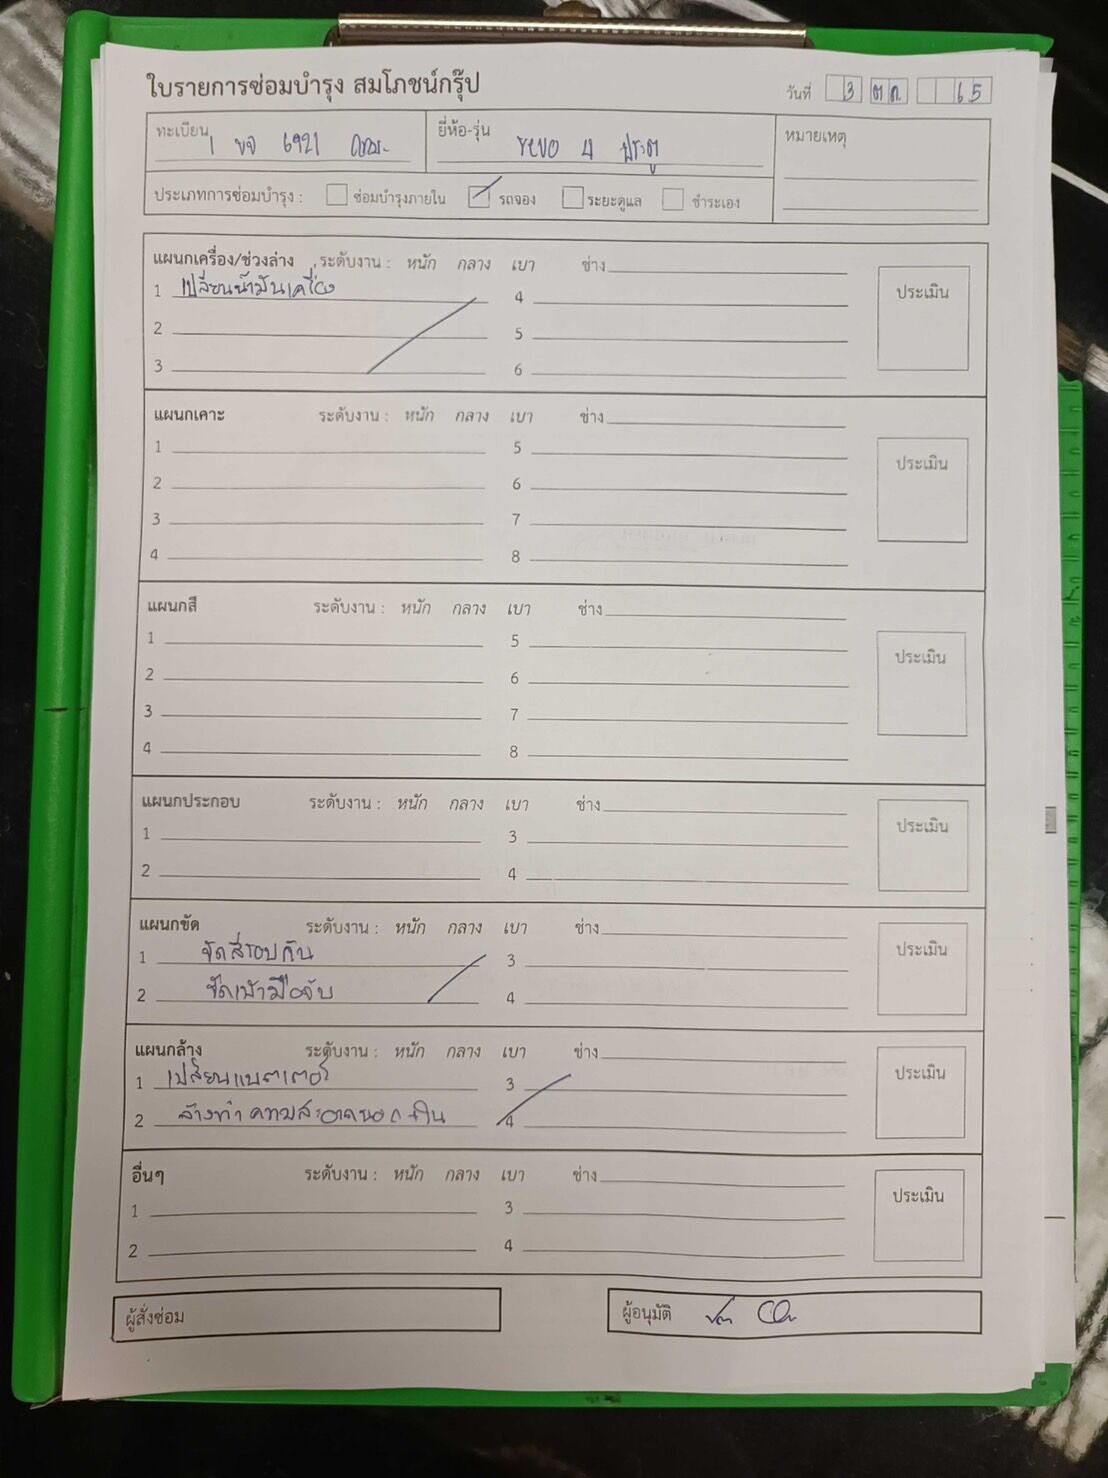 ใบรายการซ่อมบำรุง สมโภชน์กรุ๊ป
วันที่ 3 ตค 65
ทะเบียน 1 ขจ 6921 ยี่ห้อ-รุ่น revo 4 ประตู หมายเหตุ
ประเภทการซ่อมบำรุง : ซ่อมบำรุงภายใน รถจอง ระยะดูแล ชำระเอง
แผนกเครื่อง/ช่วงล่าง ระดับงาน : หนัก กลาง เบา ช่าง ประเมิน
1 เปลี่ยนน้ำมันเครื่อง 4
2 5
3 6
แผนกเคาะ ระดับงาน : หนัก กลาง เบา ช่าง ประเมิน
1 5
2 6
3 7
4 8
แผนกสี ระดับงาน : หนัก กลาง เบา ช่าง ประเมิน
1 5
2 6
3 7
4 8
แผนกประกอบ ระดับงาน : หนัก กลาง เบา ช่าง ประเมิน
1 3
2 4
แผนกขัด ระดับงาน : หนัก กลาง เบา ช่าง ประเมิน
1 ขัดสีรอบคัน 3
2 ขัดเบ้ามือจับ 4
แผนกล้าง ระดับงาน : หนัก กลาง เบา ช่าง ประเมิน
1 เปลี่ยนแบตเตอรี่ 3
2 ล้างทำความสะอาดนอก-ใน 4
อื่นๆ ระดับงาน : หนัก กลาง เบา ช่าง ประเมิน
1 3
2 4
ผู้สั่งซ่อม ผู้อนุมัติ